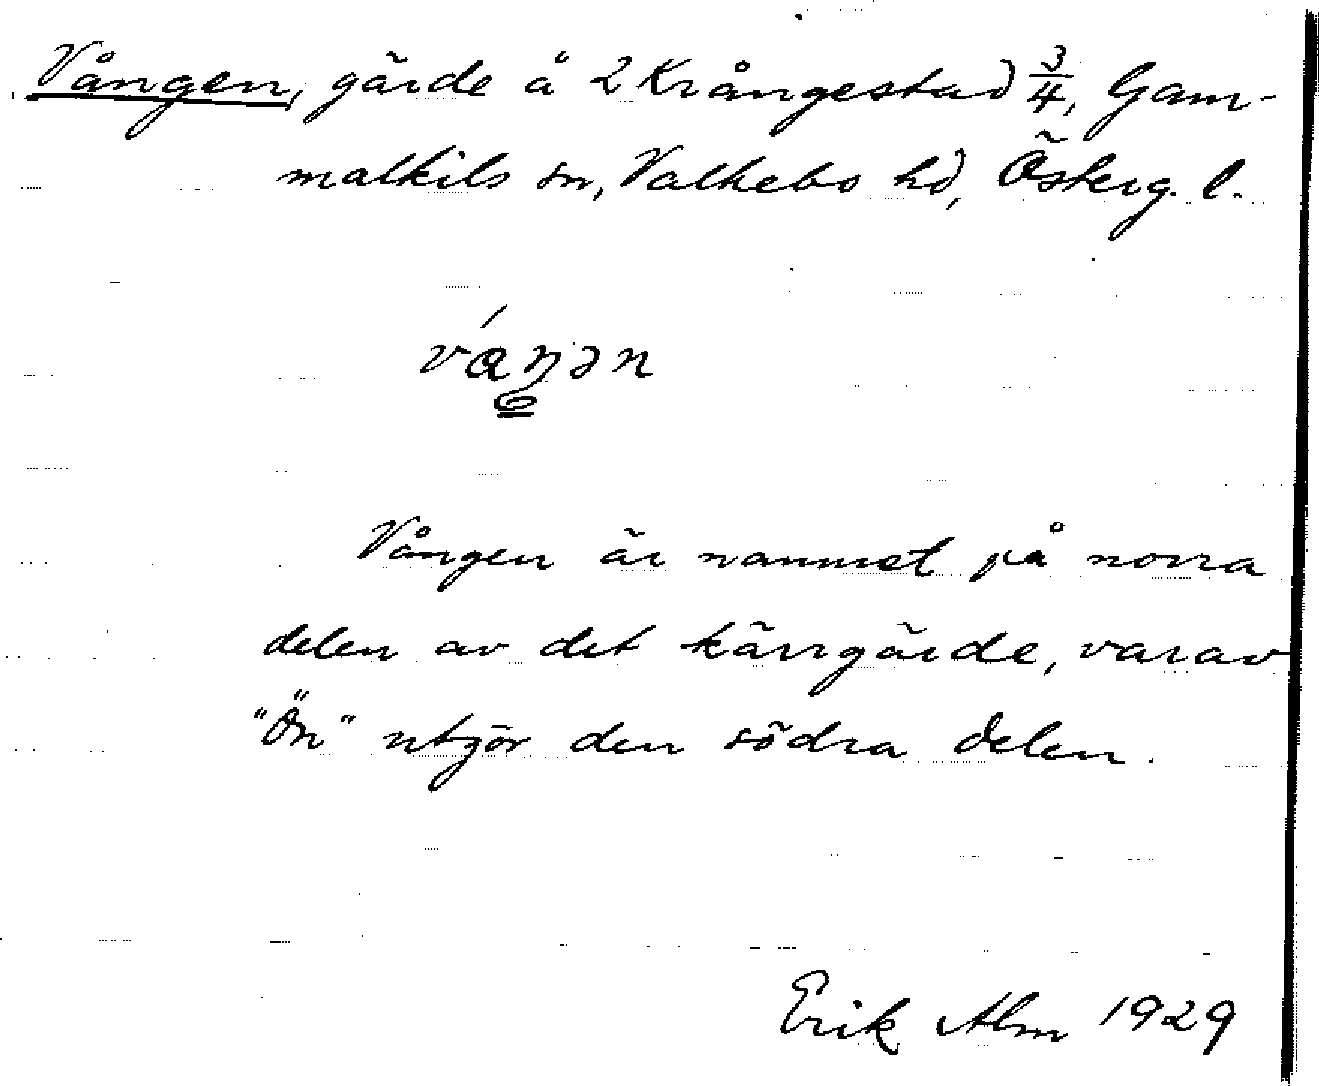 Vången, gärde å 2 Krångestad 3/4, Gam-
malkils sn, Valkebo hd, Österg. l.
váŋən
Vången är namnet på norra
delen av det kärrgärde, varav
"Ön" utgör den södra delen.
Erik Alm 1929